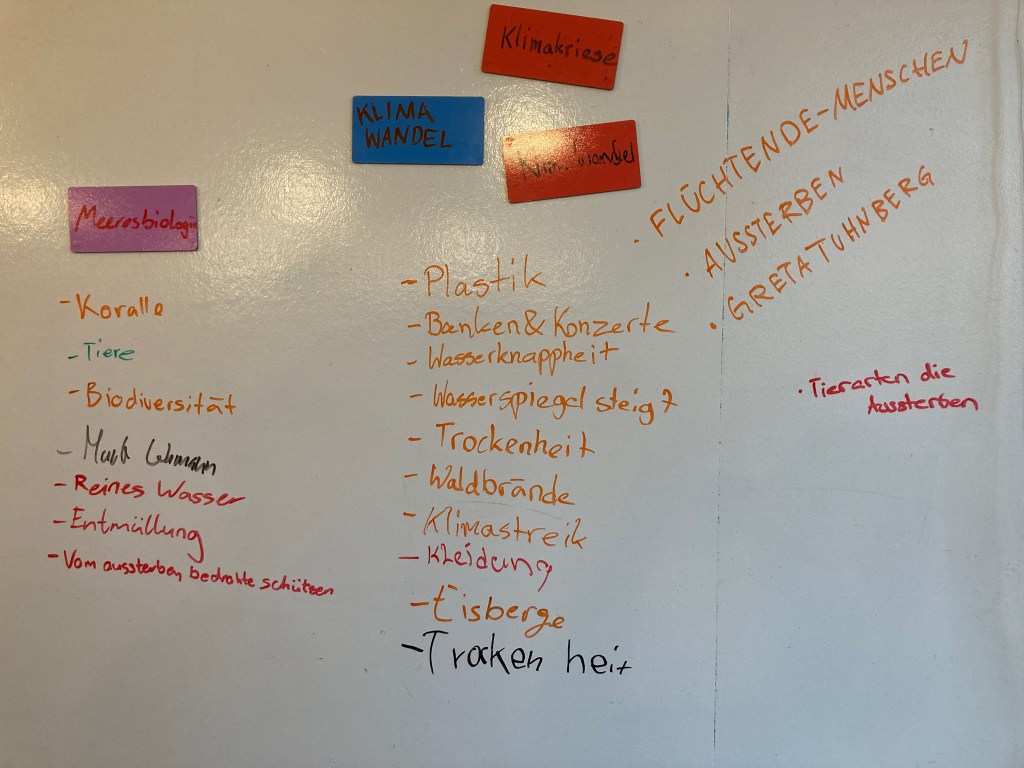 Klimakriese
KLIMA
WANDEL
Meeresbiologie
- Koralle
- Tiere
- Biodiversität
- Reines Wasser
- Entmüllung
- Vom aussterben bedrohte schützen
- Plastik
- Banken & Konzerte
- Wasserknappheit
- Wasserspiegel steigt
- Trockenheit
- Waldbrände
- Klimastreik
- Kleidung
- Eisberge
- Trocken heit
· FLÜCHTENDE-MENSCHEN
· AUSSTERBEN
· GRETA TUHNBERG
· Tierarten die
Aussterben